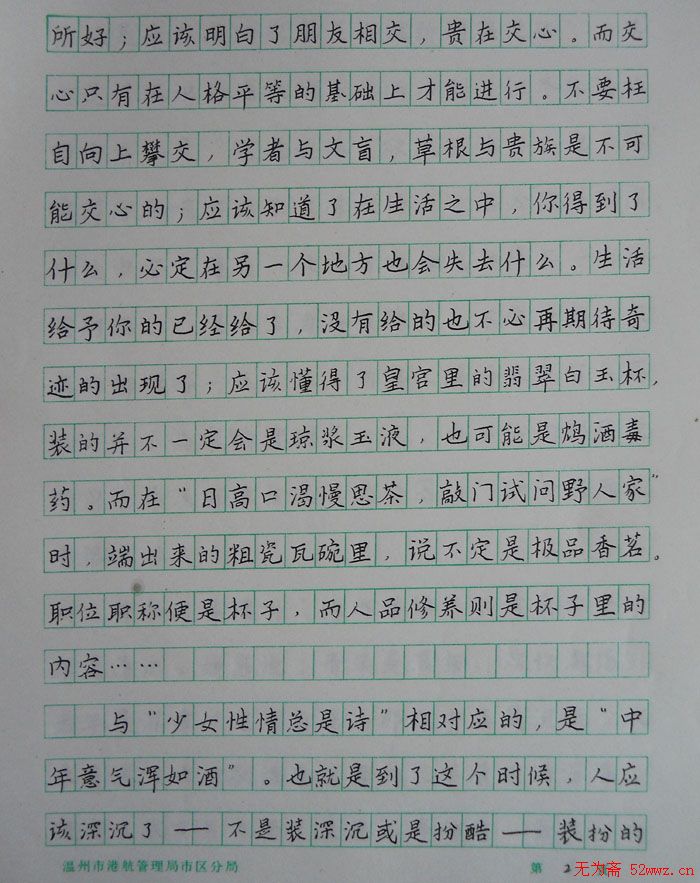 所好；应该明白了朋友相交，贵在交心。而交
心只有在人格平等的基础上才能进行。不要枉
自向上攀交，学者与文盲，草根与贵族是不可
能交心的；应该知道了在生活之中，你得到了
什么，必定在另一个地方也会失去什么。生活
给予你的已经给了，没有给的也不必再期待奇
迹的出现了；应该懂得了皇宫里的翡翠白玉杯，
装的并不一定会是琼浆玉液，也可能是鸩酒毒
药。而在“日高口渴慢思茶，敲门试问野人家”
时，端出来的粗瓷瓦碗里，说不定是极品香茗。
职位职称便是杯子，而人品修养则是杯子里的
内容……
与“少女性情总是诗”相对应的，是“中
年意气浑如酒”。也就是到了这个时候，人应
该深沉了——不是装深沉或是扮酷——装扮的
温州市港航管理局市区分局 第 2
无为斋 52wwz.cn